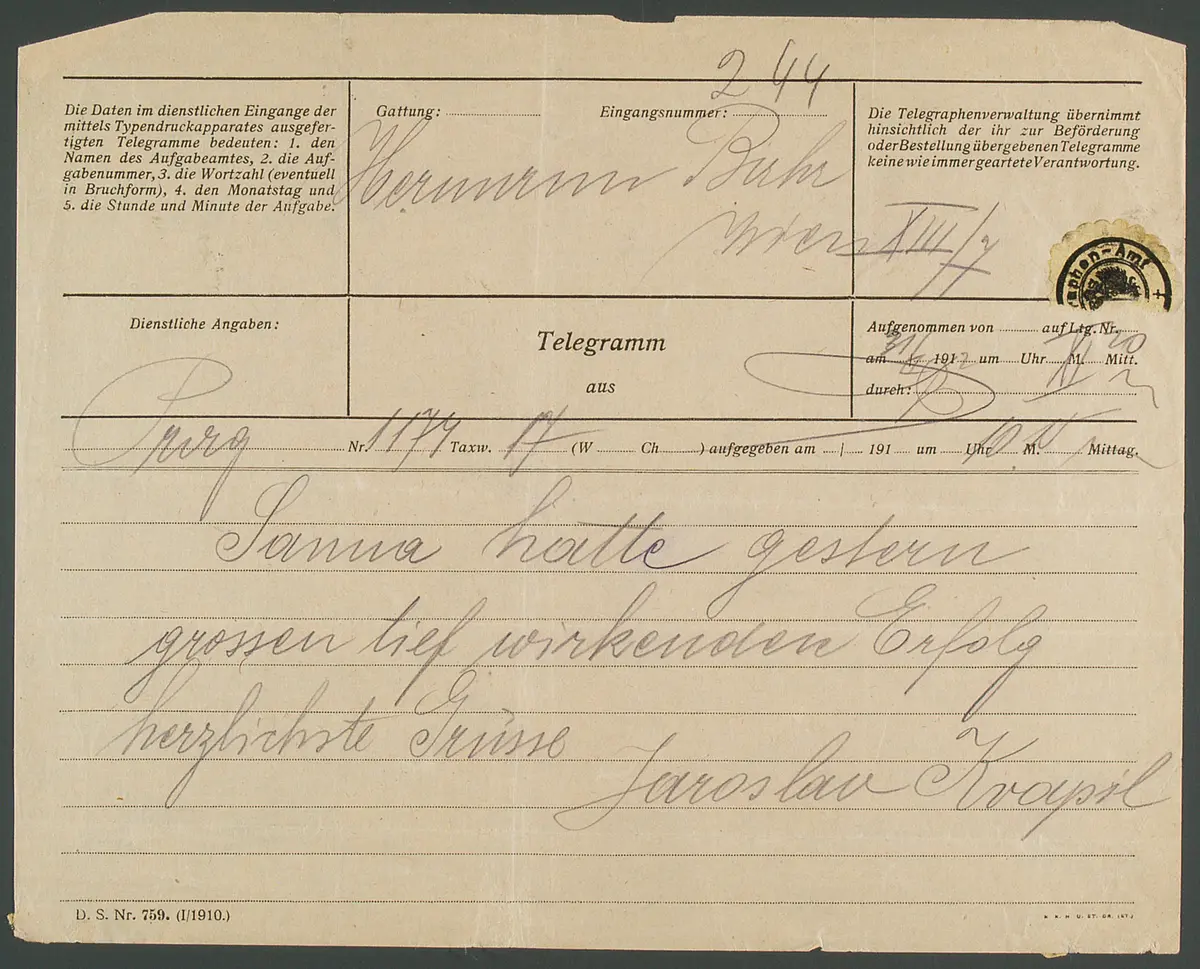 2 44
Die Daten im dienstlichen Eingange der
mittels Typendruckapparates ausgefer-
tigten Telegramme bedeuten: 1. den
Namen des Aufgabeamtes, 2. die Auf-
gabenummer, 3. die Wortzahl (eventuell
in Bruchform), 4. den Monatstag und
5. die Stunde und Minute der Aufgabe.
Gattung: Eingangsnummer:
Hermann Bahr
Wien XIII/7
Die Telegraphenverwaltung übernimmt
hinsichtlich der ihr zur Beförderung
oder Bestellung übergebenen Telegramme
keine wie immer geartete Verantwortung.
raphen-Amt
Dienstliche Angaben:
Telegramm
aus
Aufgenommen von auf Ltg. Nr.
am 31/ 1912 um Uhr M. Mitt.
durch:
Prag Nr. 1174 Taxw. 17 (W Ch ) aufgegeben am | 191 um Uhr M. Mittag.
Sanna hatte gestern
grossen tief wirkenden Erfolg
herzlichste Grüsse
Jaroslav Kvapil
D. S. Nr. 759. (I/1910.)